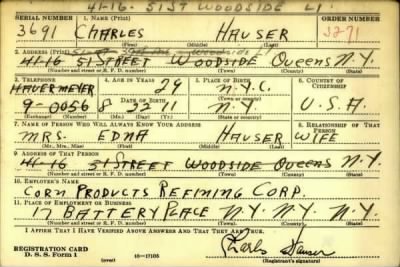 41-16- 51ST WOODSIDE L1
SERIAL NUMBER 1. NAME (Print) ORDER NUMBER
3691 CHARLES HAUSER 3271
(First) (Middle) (Last)
2. ADDRESS (Print)
41-16 51 STREET WOODSIDE Queens N.Y.
(Number and street or R. F. D. number) (Town) (County) (State)
3. TELEPHONE 4. AGE IN YEARS 5. PLACE OF BIRTH 6. COUNTRY OF CITIZENSHIP
HAVERMEYER 29 N.Y.C.
9-0056 8 22 11 N.Y. U.S.A.
7. NAME OF PERSON WHO WILL ALWAYS KNOW YOUR ADDRESS 8. RELATIONSHIP OF THAT PERSON
MRS. EDNA HAUSER WIFE
(Mr., Mrs., Miss) (First) (Middle) (Last)
9. ADDRESS OF THAT PERSON
41-16 51 STREET WOODSIDE Queens N.Y.
(Number and street or R. F. D. number) (Town) (County) (State)
10. EMPLOYER'S NAME
CORN PRODUCTS REFINING CORP.
11. PLACE OF EMPLOYMENT OR BUSINESS
17 BATTERY PLACE N.Y. N.Y. N.Y.
(Number and street or R. F. D. number) (Town) (County) (State)
I AFFIRM THAT I HAVE VERIFIED ABOVE ANSWERS AND THAT THEY ARE TRUE.
REGISTRATION CARD
D. S. S. Form 1 16-17105 Charles Hauser
(Registrant's signature)